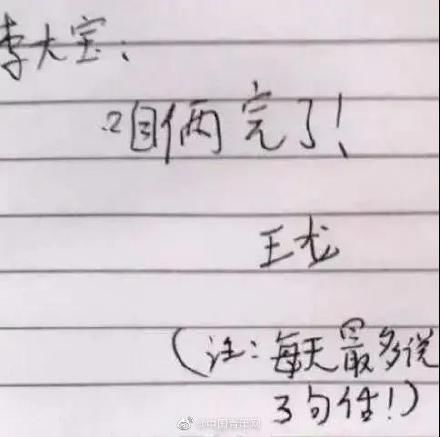 李大宝：
咱俩完了！
王龙
（注：每天最多说
3句话！）
@中国青年网